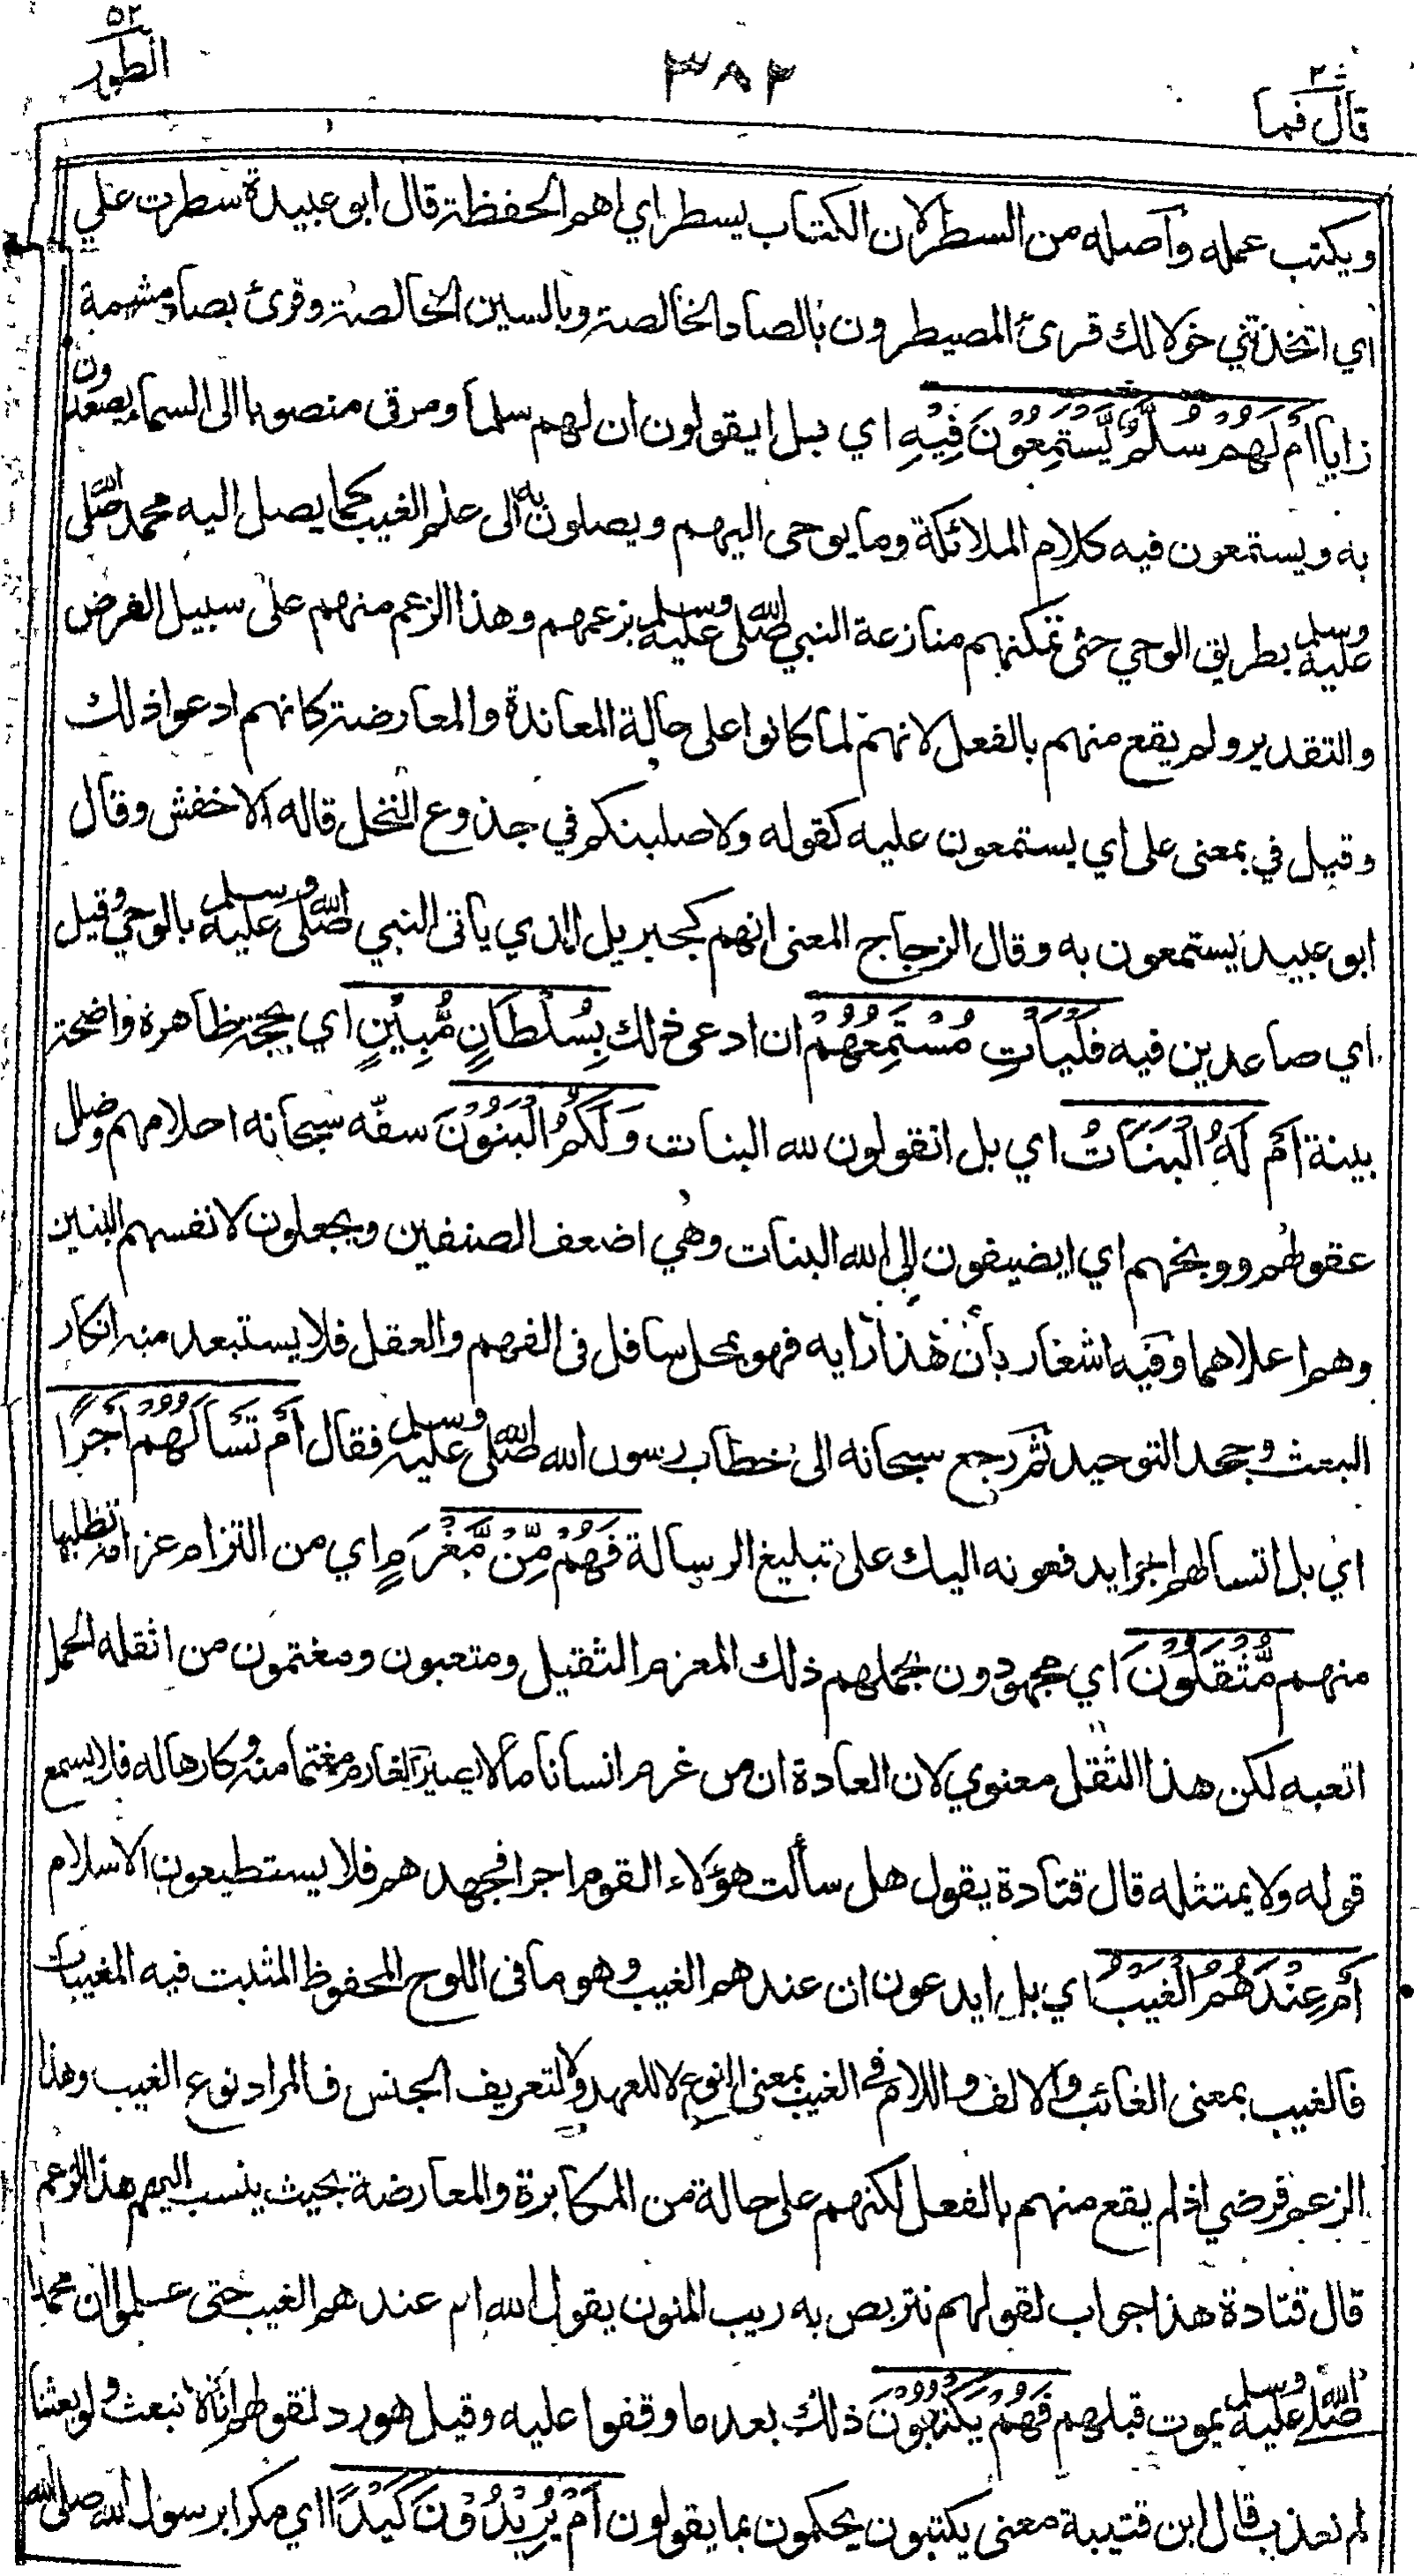 ٥٢
الطور
٣٨٢
قال فما
ويكتب عمله وأصله من السطر لان الكتاب يسطر اي اهم الحفظة قال ابو عبيدة سطرت علي
اي اتخذتني خولا لك قرئ المصيطرون بالصاد الخالصة وبالسين الخالصة وقرئ بصاد مشمة
زايا أَمْ لَهُمْ سُلَّمٌ يَّسْتَمِعُوْنَ فِيْهِ اي بل ايقولون ان لهم سلما ومرقى منصوبا الى السماء يصعدون
به ويستمعون فيه كلام الملائكة وما يوحى اليهم ويصلون به الى علم الغيب كما يصل اليه محمد صلى الله
عليه وسلم بطريق الوحي حتى تمكنهم منازعة النبي صلى الله عليه وسلم بزعمهم وهذا الزعم منهم على سبيل الفرض
والتقدير ولم يقع منهم بالفعل لانهم لما كانوا على حالة المعاندة والمعارضة كانهم ادعوا ذلك
وقيل في بمعنى على اي يستمعون عليه كقوله ولاصلبنكم في جذوع النخل قاله الاخفش وقال
ابو عبيد يستمعون به وقال الزجاج المعنى انهم كجبريل الذي ياتى النبي صلى الله عليه وسلم بالوحي وقيل
اي صاعدين فيه فَلْيَأْتِ مُسْتَمِعُهُمْ ان ادعى ذلك بِسُلْطَانٍ مُّبِيْنٍ اي بحجة ظاهرة واضحة
بينة أَمْ لَهُ الْبَنَاتُ اي بل اتقولون لله البنات وَلَكُمُ الْبَنُوْنَ سفّه سبحانه احلامهم وضلل
عقولهم ووبخهم اي ايضيفون الى الله البنات وهي اضعف الصنفين ويجعلون لانفسهم البنين
وهم اعلاهما وفيه اشعار بأن هذا رايه فهو بمحل سافل فى الفهم والعقل فلا يستبعد منه انكار
البعث وجحد التوحيد ثم رجع سبحانه الى خطاب رسول الله صلى الله عليه وسلم فقال أَمْ تَسْأَلُهُمْ أَجْرًا
اي بل اتسالهم اجرا يدفعونه اليك على تبليغ الرسالة فَهُمْ مِّنْ مَّغْرَمٍ اي من التزام غرامة تطلبها
منهم مُّثْقَلُوْنَ اي مجهودون بحملهم ذلك المغرم الثقيل ومتعبون ومغتمون من اثقله الحمل
اتعبه لكن هذا الثقل معنوي لان العادة ان من غرم انسانا مالا يصير الغارم مغتما منه وكارها له فلا يسمع
قوله ولا يمتثله قال قتادة يقول هل سألت هؤلاء القوم اجرا فجهدهم فلا يستطيعون الاسلام
أَمْ عِنْدَهُمُ الْغَيْبُ اي بل ايدعون ان عندهم الغيب وهو ما فى اللوح المحفوظ المثبت فيه المغيبات
فالغيب بمعنى الغائب والالف واللام في الغيب بمعنى النوع لا للعهد ولا لتعريف الجنس فالمراد نوع الغيب وهذا
الزعم فرضي اذ لم يقع منهم بالفعل لكنهم على حالة من المكابرة والمعارضة بحيث ينسب اليهم هذا الزعم
قال قتادة هذا جواب لقولهم نتربص به ريب المنون يقول الله ام عندهم الغيب حتى علموا ان محمدا
صلى الله عليه وسلم يموت قبلهم فَهُمْ يَكْتُبُوْنَ ذلك بعد ما وقفوا عليه وقيل هو رد لقولهم انا لا نبعث ولو بعثنا
لم نعذب قال ابن قتيبة معنى يكتبون يحكمون بما يقولون أَمْ يُرِيْدُوْنَ كَيْدًا اي مكرا برسول الله صلى الله